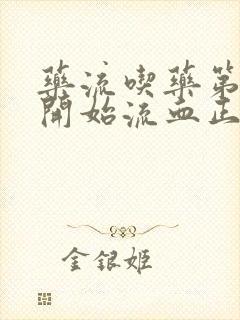 藥流喫藥第
開始流血正
金銀姬